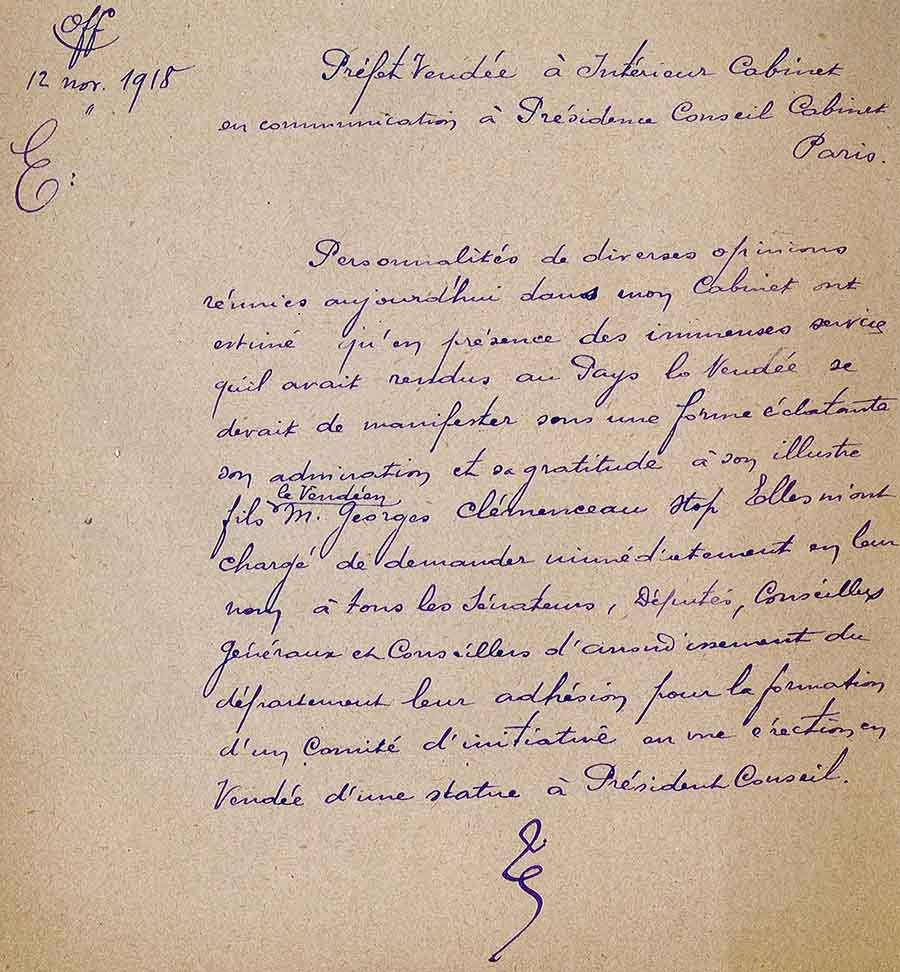 Off
12 nov. 1918
"
E :
Préfet Vendée à Intérieur Cabinet
en communication à Présidence Conseil Cabinet
Paris.
Personnalités de diverses opinions
réunies aujourd'hui dans mon Cabinet ont
estimé qu'en présence des immenses services
qu'il avait rendus au Pays la Vendée se
devait de manifester sous une forme éclatante
son admiration et sa gratitude à son illustre
le Vendéen
fils M. Georges Clémenceau stop Elles m'ont
chargé de demander immédiatement en leur
nom à tous les Sénateurs, Députés, Conseillers
Généraux et Conseillers d'arrondissement du
département leur adhésion pour la formation
d'un Comité d'initiative en vue érection en
Vendée d'une statue à Président Conseil.